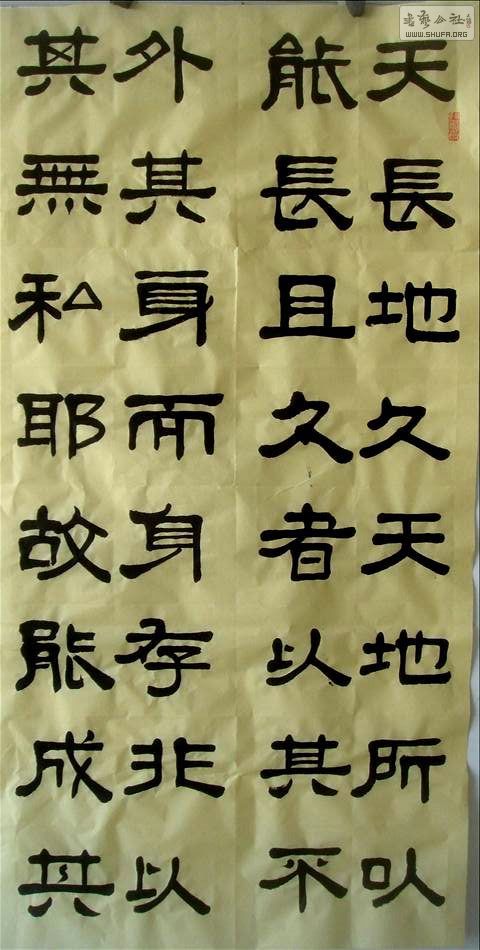 天長地久天地所以
能長且久者以其不
外其身而身存非以
其無私耶故能成其
書藝公社
WWW.SHUFA.ORG